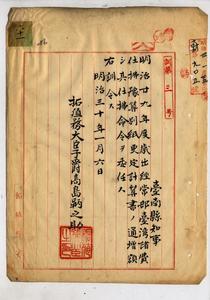 訓第三号
臺南縣知事
明治廿九年度歳出経常部臺湾諸費
仕拂豫算別紙更定計算書ノ通増額
シ其仕拂命令ヲ委任ス
右訓令ス
明治三十年一月六日
拓殖務大臣子爵高島鞆之助